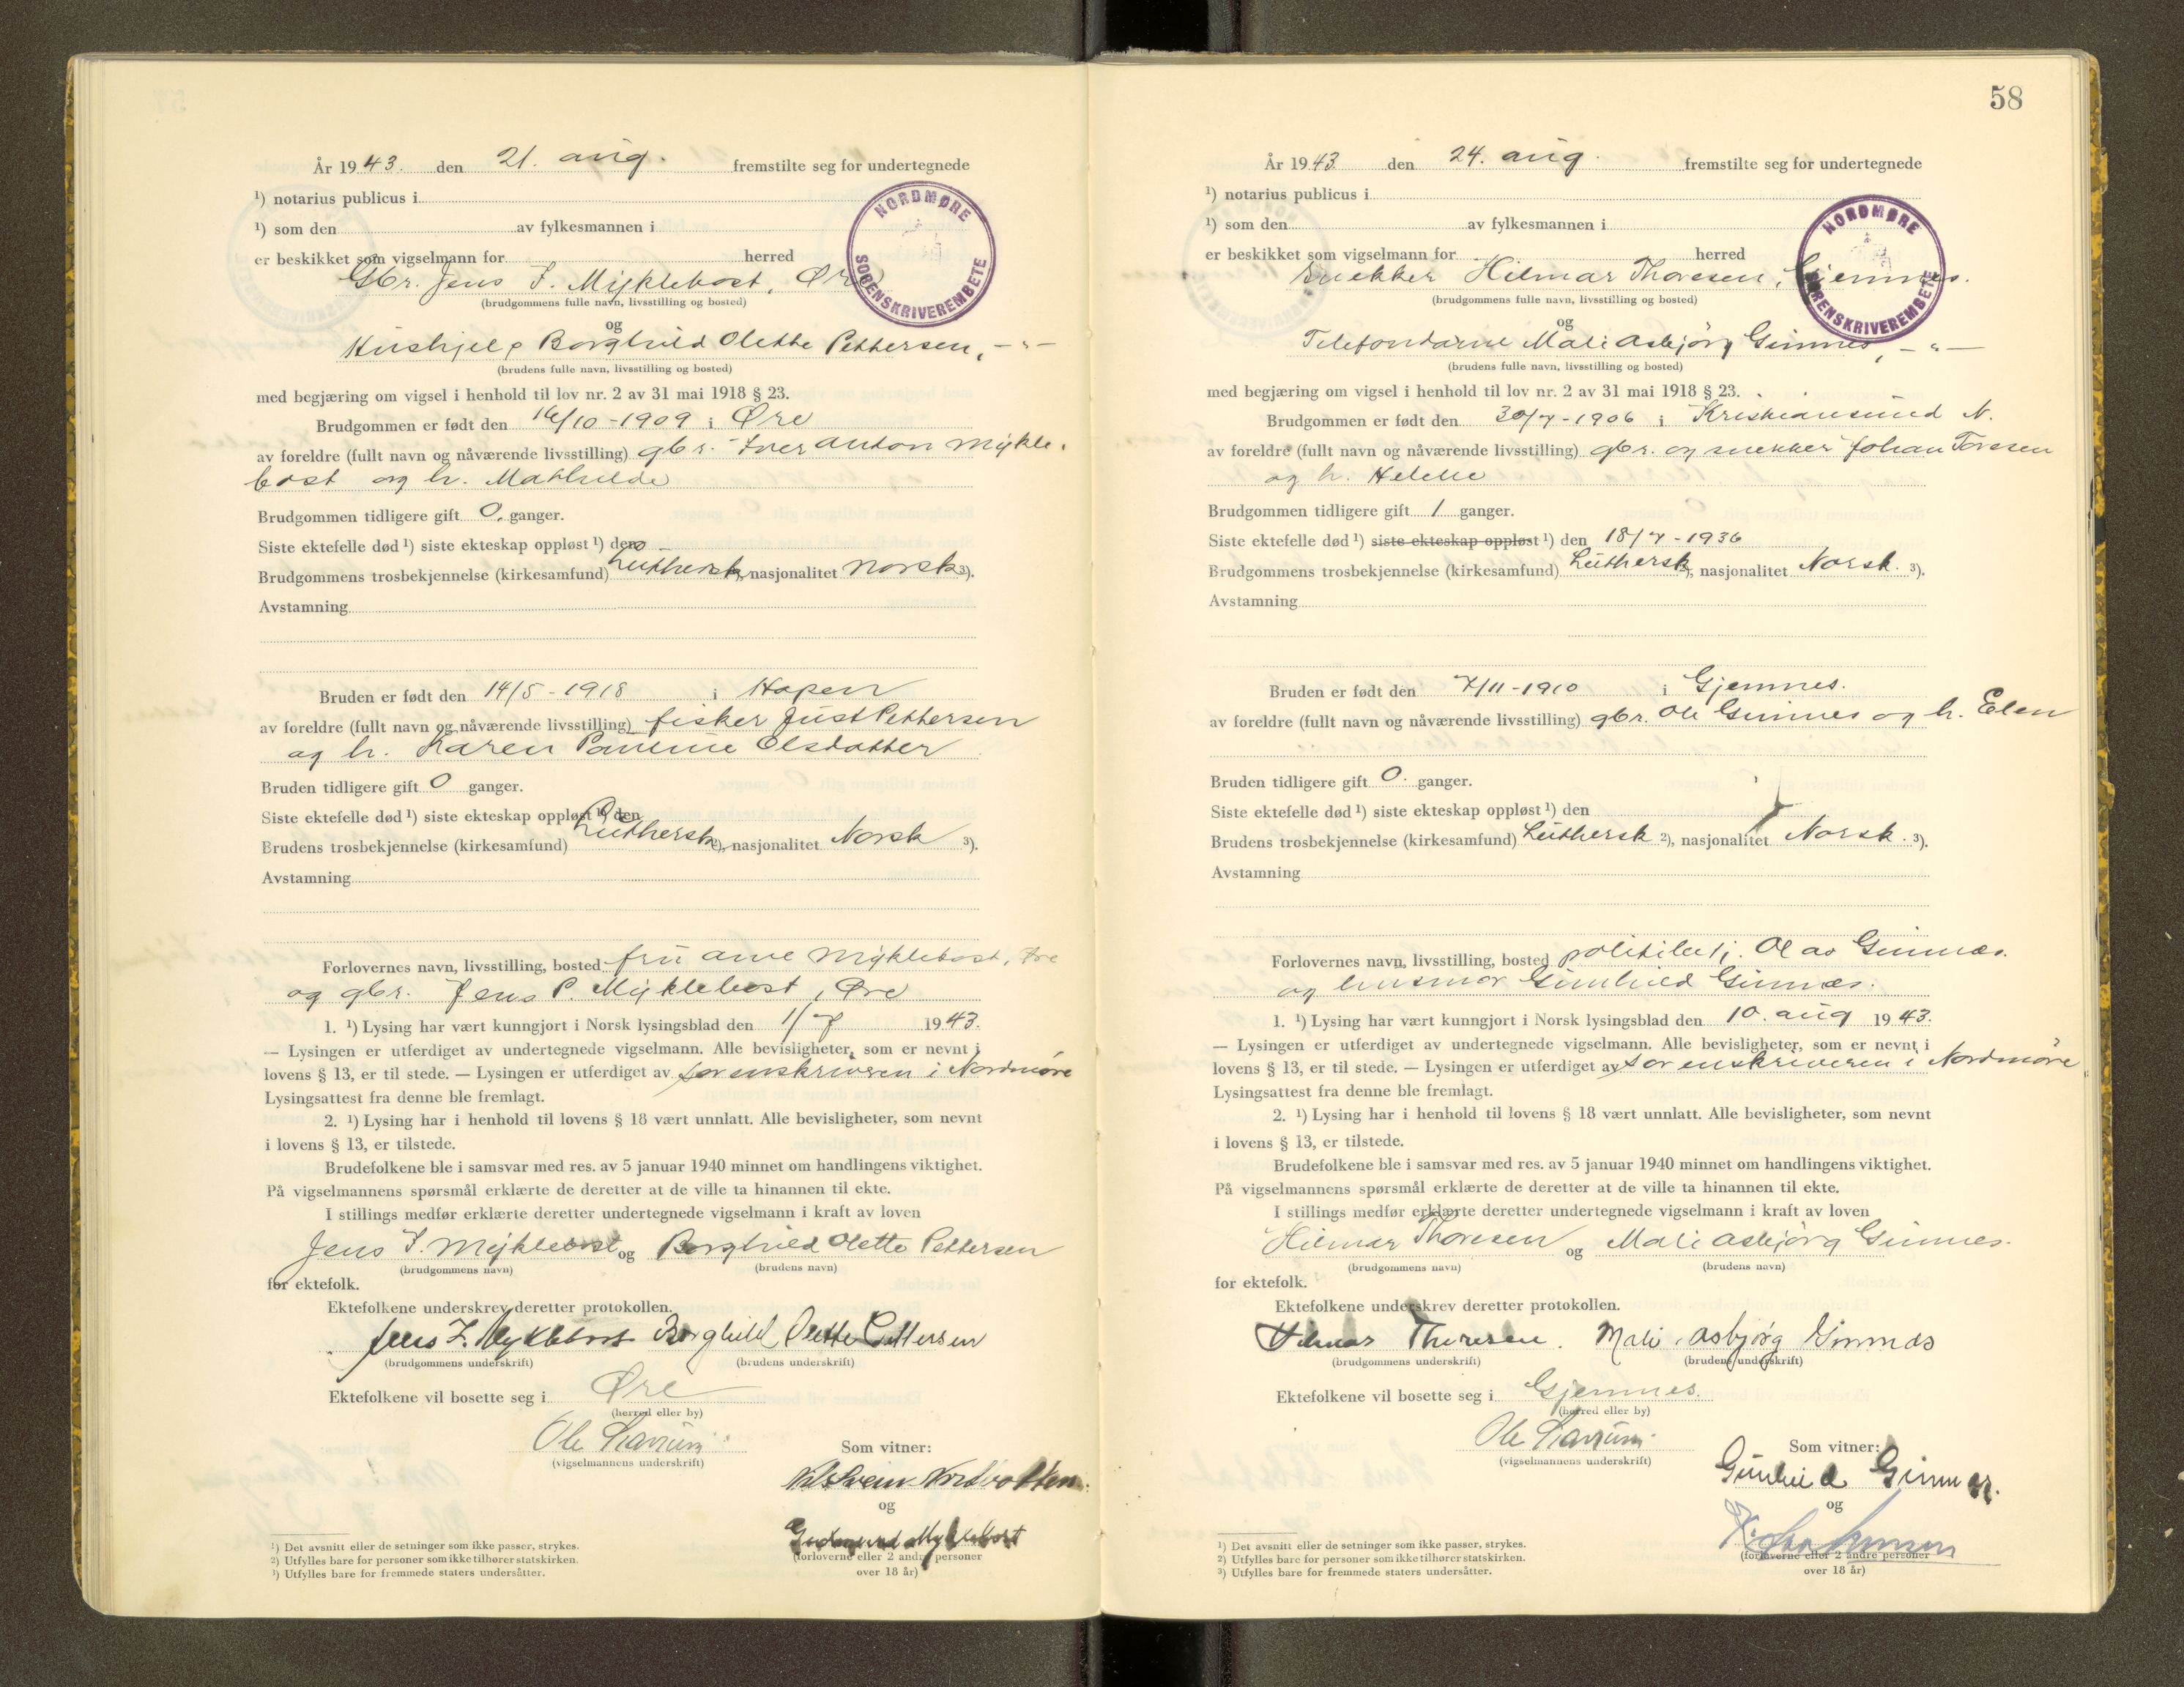 År 19 43. den 21. aug. fremstilte seg for undertegnede
¹) notarius publicus i
¹) som den av fylkesmannen i
er beskikket som vigselmann for herred
NORDMØRE SORENSKRIVEREMBETE
Gbr. Jens I. Myklebost, Øre
(brudgommens fulle navn, livsstilling og bosted)
og
Hushjelp Borghild Olette Pettersen, -"-
(brudens fulle navn, livsstilling og bosted)
med begjæring om vigsel i henhold til lov nr. 2 av 31 mai 1918 § 23.
Brudgommen er født den 16/10-1909 i Øre
av foreldre (fullt navn og nåværende livsstilling) gbr. Iver Anton Mykle-
bost og h. Mathilde
Brudgommen tidligere gift 0. ganger.
Siste ektefelle død ¹) siste ekteskap oppløst ¹) den
Brudgommens trosbekjennelse (kirkesamfund) Luthersk, nasjonalitet Norsk ³).
Avstamning
Bruden er født den 14/5-1918 i Hopen
av foreldre (fullt navn og nåværende livsstilling) fisker Just Pettersen
og h. Karen Olsdatter
Bruden tidligere gift 0 ganger.
Siste ektefelle død ¹) siste ekteskap oppløst ¹) den
Brudens trosbekjennelse (kirkesamfund) Luthersk ²), nasjonalitet Norsk ³).
Avstamning
Forlovernes navn, livsstilling, bosted fru Myklebost, Øre
og gbr. Jens P. Myklebost, Øre
1. ¹) Lysing har vært kunngjort i Norsk lysingsblad den 1/7 19 43.
— Lysingen er utferdiget av undertegnede vigselmann. Alle bevisligheter, som er nevnt i
lovens § 13, er til stede. — Lysingen er utferdiget av sorenskriveren i Nordmøre
Lysingsattest fra denne ble fremlagt.
2. ¹) Lysing har i henhold til lovens § 18 vært unnlatt. Alle bevisligheter, som nevnt
i lovens § 13, er tilstede.
Brudefolkene ble i samsvar med res. av 5 januar 1940 minnet om handlingens viktighet.
På vigselmannens spørsmål erklærte de deretter at de ville ta hinannen til ekte.
I stillings medfør erklærte deretter undertegnede vigselmann i kraft av loven
Jens I. Myklebost og Borghild Olette Pettersen
(brudgommens navn) (brudens navn)
for ektefolk.
Ektefolkene underskrev deretter protokollen.
Jens I. Myklebost Borghild Olette Pettersen
(brudgommens underskrift) (brudens underskrift)
Ektefolkene vil bosette seg i Øre
(herred eller by)
Ole
(vigselmannens underskrift)
Som vitner:
Nils Svein Nordvatten
og
Gudmund Myklebost
(forloverne eller 2 andre personer
over 18 år)
¹) Det avsnitt eller de setninger som ikke passer, strykes.
²) Utfylles bare for personer som ikke tilhører statskirken.
³) Utfylles bare for fremmede staters undersåtter.
58
År 19 43. den 24. aug. fremstilte seg for undertegnede
¹) notarius publicus i
¹) som den av fylkesmannen i
er beskikket som vigselmann for herred
NORDMØRE SORENSKRIVEREMBETE
Snekker Hilmar Thoresen, Gjemnes.
(brudgommens fulle navn, livsstilling og bosted)
og
Telefondame Mali Asbjørg Gimnes, -"-
(brudens fulle navn, livsstilling og bosted)
med begjæring om vigsel i henhold til lov nr. 2 av 31 mai 1918 § 23.
Brudgommen er født den 30/7-1906 i Kristiansund N.
av foreldre (fullt navn og nåværende livsstilling) gbr. og snekker Johan Toresen
og h. Helene
Brudgommen tidligere gift 1 ganger.
Siste ektefelle død ¹) siste ekteskap oppløst ¹) den 18/7-1936
Brudgommens trosbekjennelse (kirkesamfund) Luthersk ²), nasjonalitet Norsk. ³).
Avstamning
Bruden er født den 7/11-1910 i Gjemnes.
av foreldre (fullt navn og nåværende livsstilling) gbr. Ole Gimnes og h. Elen
Bruden tidligere gift 0. ganger.
Siste ektefelle død ¹) siste ekteskap oppløst ¹) den
Brudens trosbekjennelse (kirkesamfund) Luthersk ²), nasjonalitet Norsk. ³).
Avstamning
Forlovernes navn, livsstilling, bosted Olav Gimnes.
og husmor Gunhild Gimnes.
1. ¹) Lysing har vært kunngjort i Norsk lysingsblad den 10. aug 19 43.
— Lysingen er utferdiget av undertegnede vigselmann. Alle bevisligheter, som er nevnt i
lovens § 13, er til stede. — Lysingen er utferdiget av sorenskriveren i Nordmøre
Lysingsattest fra denne ble fremlagt.
2. ¹) Lysing har i henhold til lovens § 18 vært unnlatt. Alle bevisligheter, som nevnt
i lovens § 13, er tilstede.
Brudefolkene ble i samsvar med res. av 5 januar 1940 minnet om handlingens viktighet.
På vigselmannens spørsmål erklærte de deretter at de ville ta hinannen til ekte.
I stillings medfør erklærte deretter undertegnede vigselmann i kraft av loven
Hilmar Thoresen og Mali Asbjørg Gimnes.
(brudgommens navn) (brudens navn)
for ektefolk.
Ektefolkene underskrev deretter protokollen.
Hilmar Thoresen. Mali Asbjørg Gimnes
(brudgommens underskrift) (brudens underskrift)
Ektefolkene vil bosette seg i Gjemnes.
(herred eller by)
Ole
(vigselmannens underskrift)
Som vitner:
Gunhild Gimnes.
og
(forloverne eller 2 andre personer
over 18 år)
¹) Det avsnitt eller de setninger som ikke passer, strykes.
²) Utfylles bare for personer som ikke tilhører statskirken.
³) Utfylles bare for fremmede staters undersåtter.